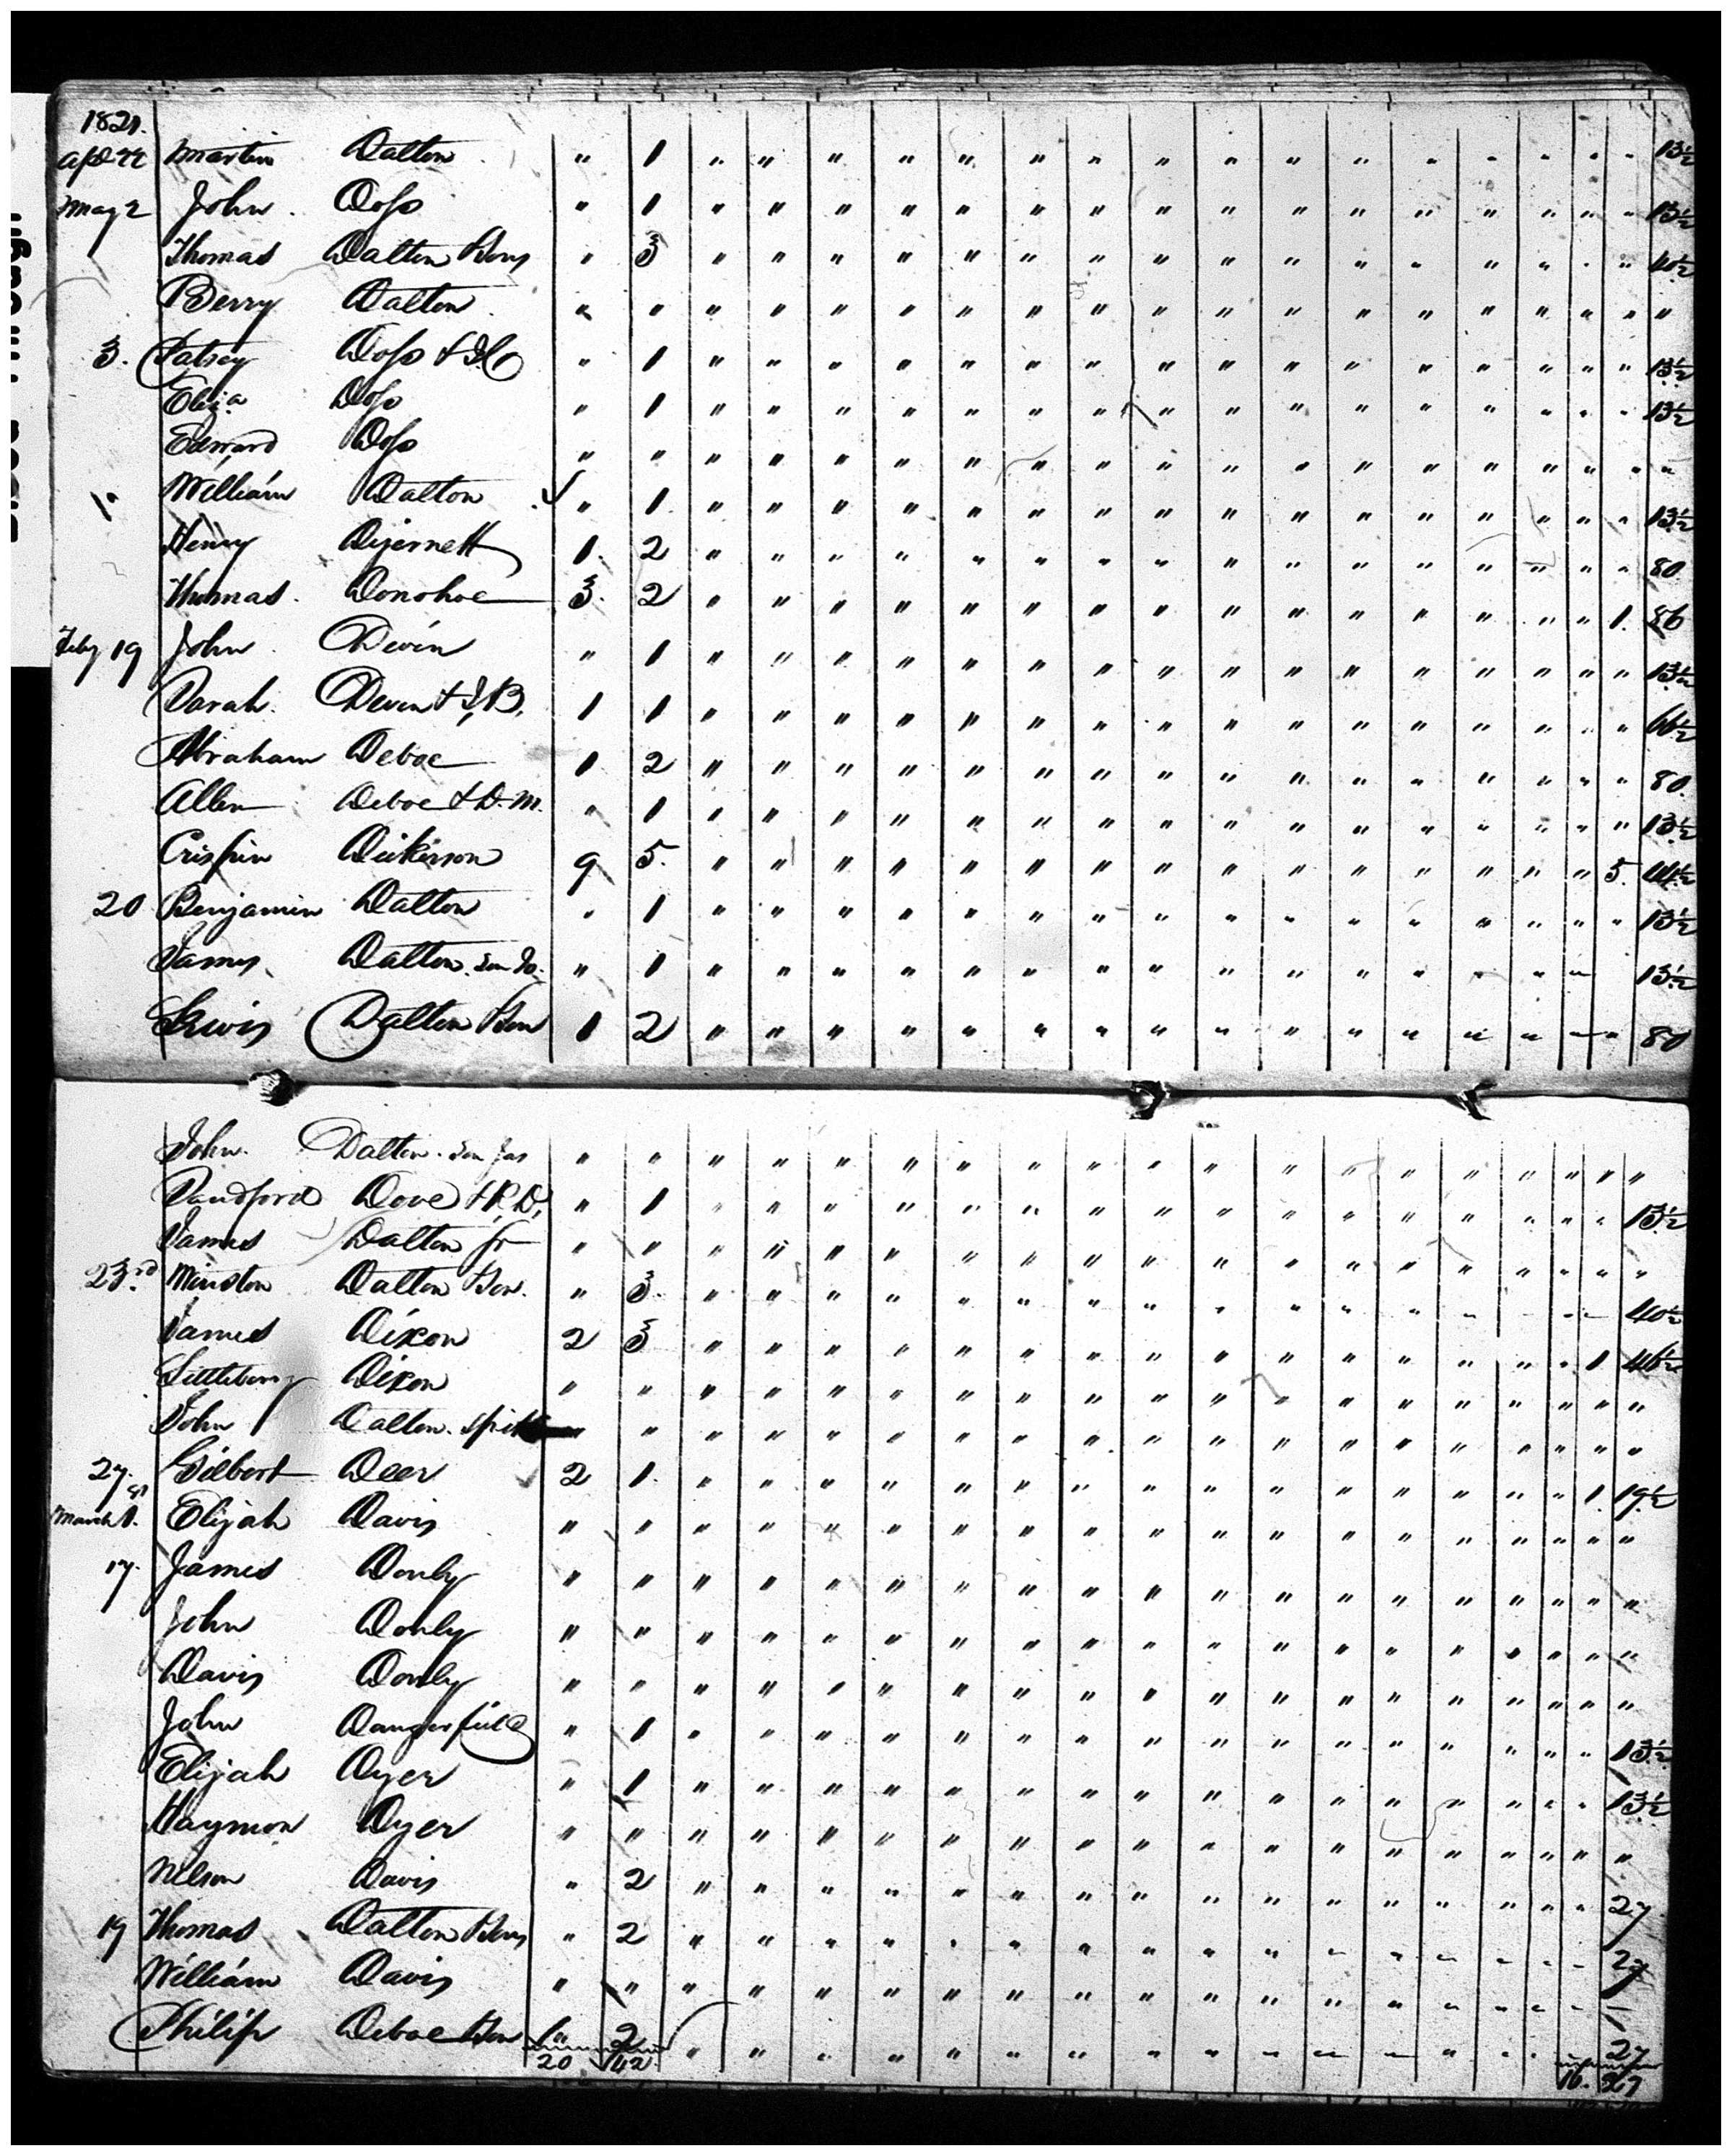 1821.
Apl 22 Martin Dalton " 1 " " " " " " " " " " " " " " " 13½
May 2 John Doss " 1 " " " " " " " " " " " " " " " 13½
Thomas Dalton " 3 " " " " " " " " " " " " " " " 40½
Berry Dalton " " " " " " " " " " " " " " " " " "
3. Patsey Doss & " 1 " " " " " " " " " " " " " " " 13½
Eliza Doss " 1 " " " " " " " " " " " " " " " 13½
Edward Doss " " " " " " " " " " " " " " " " " "
William Dalton " 1 " " " " " " " " " " " " " " " 13½
Henry Dejernett 1. 2 " " " " " " " " " " " " " " " 80
Thomas. Donohoe 3. 2 " " " " " " " " " " " " " " 1. 86
Feby 19 John Devin " 1 " " " " " " " " " " " " " " " 13½
Sarah. Deven & J,B, 1 1 " " " " " " " " " " " " " " " 66½
Abraham Deboe 1 2 " " " " " " " " " " " " " " " 80.
Allen Deboe & D.M. " 1 " " " " " " " " " " " " " " " 13½
Crispin Dickerson 9 5. " " " " " " " " " " " " " " 5. 44½
20 Benjamin Dalton " 1 " " " " " " " " " " " " " " " 13½
James Dalton. Son Jo. " 1 " " " " " " " " " " " " " " 13½
Lewis Dalton Ben 1 2 " " " " " " " " " " " " " " " 80
John. Dalton. Son Jas " " " " " " " " " " " " " " " " " "
Sandford Dove & R,D, " 1 " " " " " " " " " " " " " " " 13½
James Dalton Jr " " " " " " " " " " " " " " " " " "
23rd Winston Dalton " 3. " " " " " " " " " " " " " " 40½
James Dixon 2 3 " " " " " " " " " " " " " " 1 46½
Littleberry Dixon " " " " " " " " " " " " " " " " " "
John Dalton. " " " " " " " " " " " " " " " " "
27. Gilbert Deer 2 1. " " " " " " " " " " " " " " 1. 19½
March 1. Elijah Davis " " " " " " " " " " " " " " " " " "
17. James Donly " " " " " " " " " " " " " " " " " "
John Donly " " " " " " " " " " " " " " " " " "
Davis Donly " " " " " " " " " " " " " " " " " "
John Dangerfield " 1 " " " " " " " " " " " " " " " 13½
Elijah Dyer " 1 " " " " " " " " " " " " " " " 13½
Haymon Dyer " " " " " " " " " " " " " " " " " "
Nelson Davis " 2 " " " " " " " " " " " " " " " 27
19 Thomas Dalton " 2 " " " " " " " " " " " " " " " 27
William Davis " " " " " " " " " " " " " " " " "
Philip Deboe 2 " " " " " " " " " " " " " " 27
20 42 10.